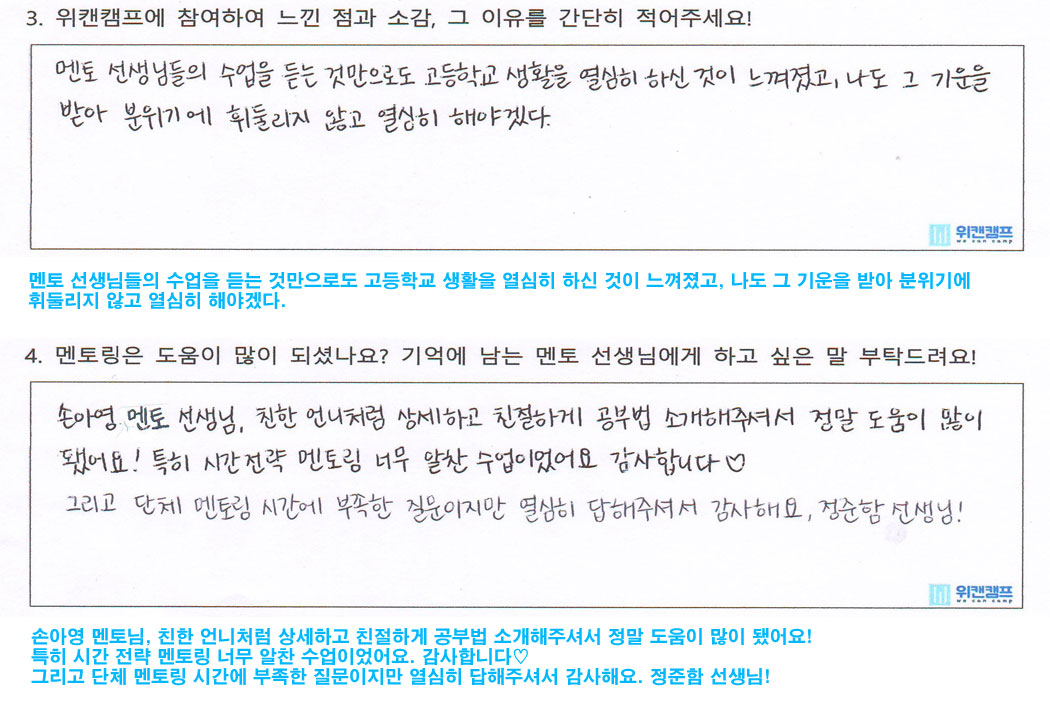 3. 위캔캠프에 참여하여 느낀 점과 소감, 그 이유를 간단히 적어주세요!
멘토 선생님들의 수업을 듣는 것만으로도 고등학교 생활을 열심히 하신 것이 느껴졌고, 나도 그 기운을
받아 분위기에 휘둘리지 않고 열심히 해야겠다.
위캔캠프
we can camp
멘토 선생님들의 수업을 듣는 것만으로도 고등학교 생활을 열심히 하신 것이 느껴졌고, 나도 그 기운을 받아 분위기에
휘둘리지 않고 열심히 해야겠다.
4. 멘토링은 도움이 많이 되셨나요? 기억에 남는 멘토 선생님에게 하고 싶은 말 부탁드려요!
손아영 멘토 선생님, 친한 언니처럼 상세하고 친절하게 공부법 소개해주셔서 정말 도움이 많이
됐어요! 특히 시간전략 멘토링 너무 알찬 수업이었어요 감사합니다♡
그리고 단체 멘토링 시간에 부족한 질문이지만 열심히 답해주셔서 감사해요, 정준함 선생님!
위캔캠프
we can camp
손아영 멘토님, 친한 언니처럼 상세하고 친절하게 공부법 소개해주셔서 정말 도움이 많이 됐어요!
특히 시간 전략 멘토링 너무 알찬 수업이었어요. 감사합니다♡
그리고 단체 멘토링 시간에 부족한 질문이지만 열심히 답해주셔서 감사해요. 정준함 선생님!